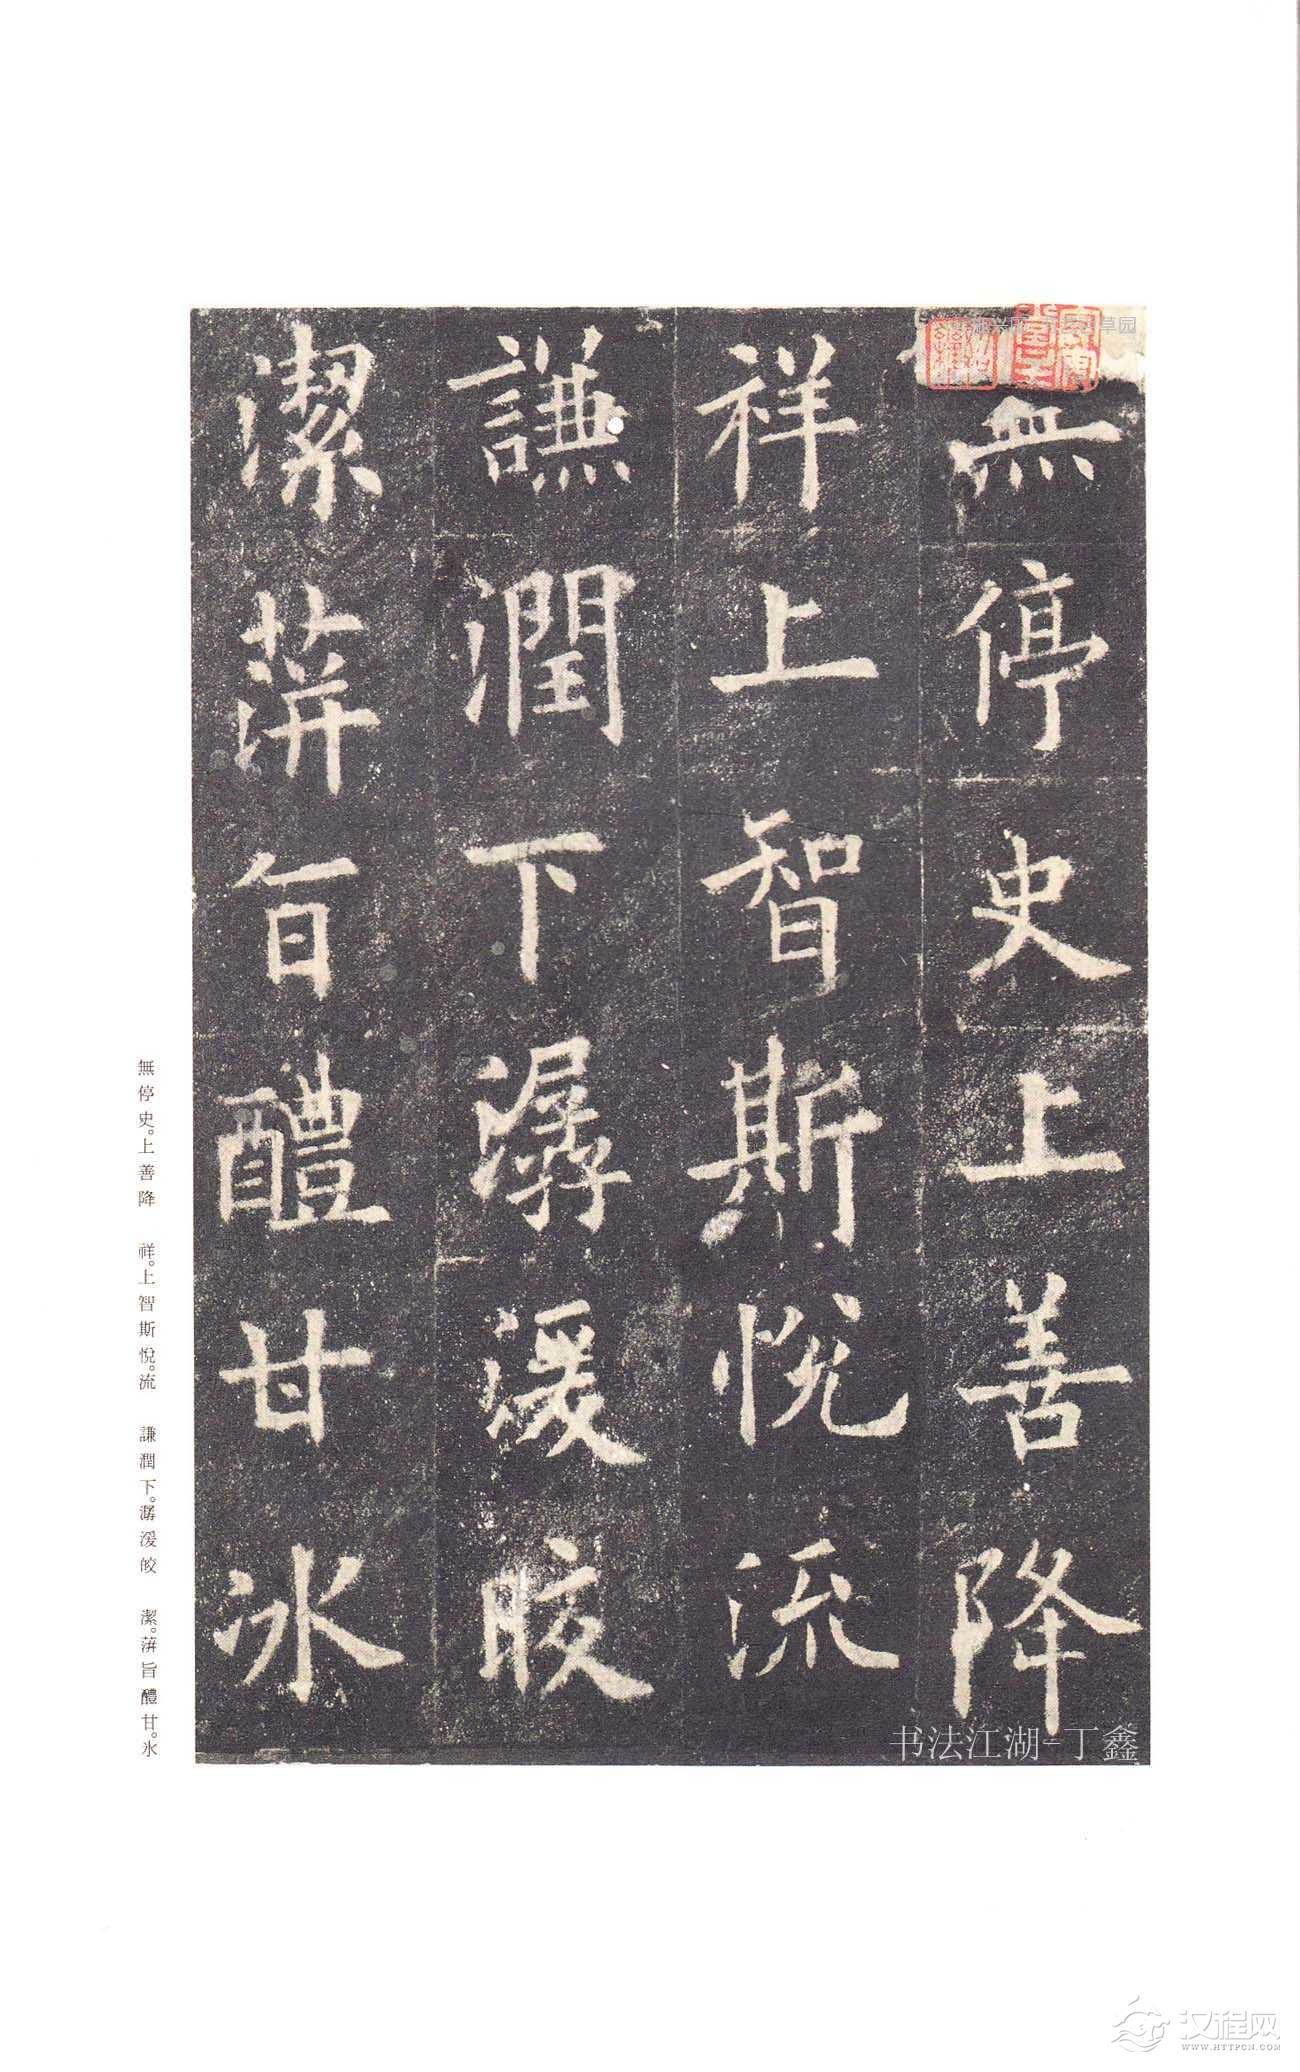 無停史上善降
祥上智斯悅流
謙潤下潺湲皎
潔蓱旨醴甘冰
無停史。上善降 祥。上智斯悅。流 謙潤下。潺湲皎 潔。蓱旨醴甘。氷
书法江湖-丁鑫
汉程网
WWW.HTTPCN.COM